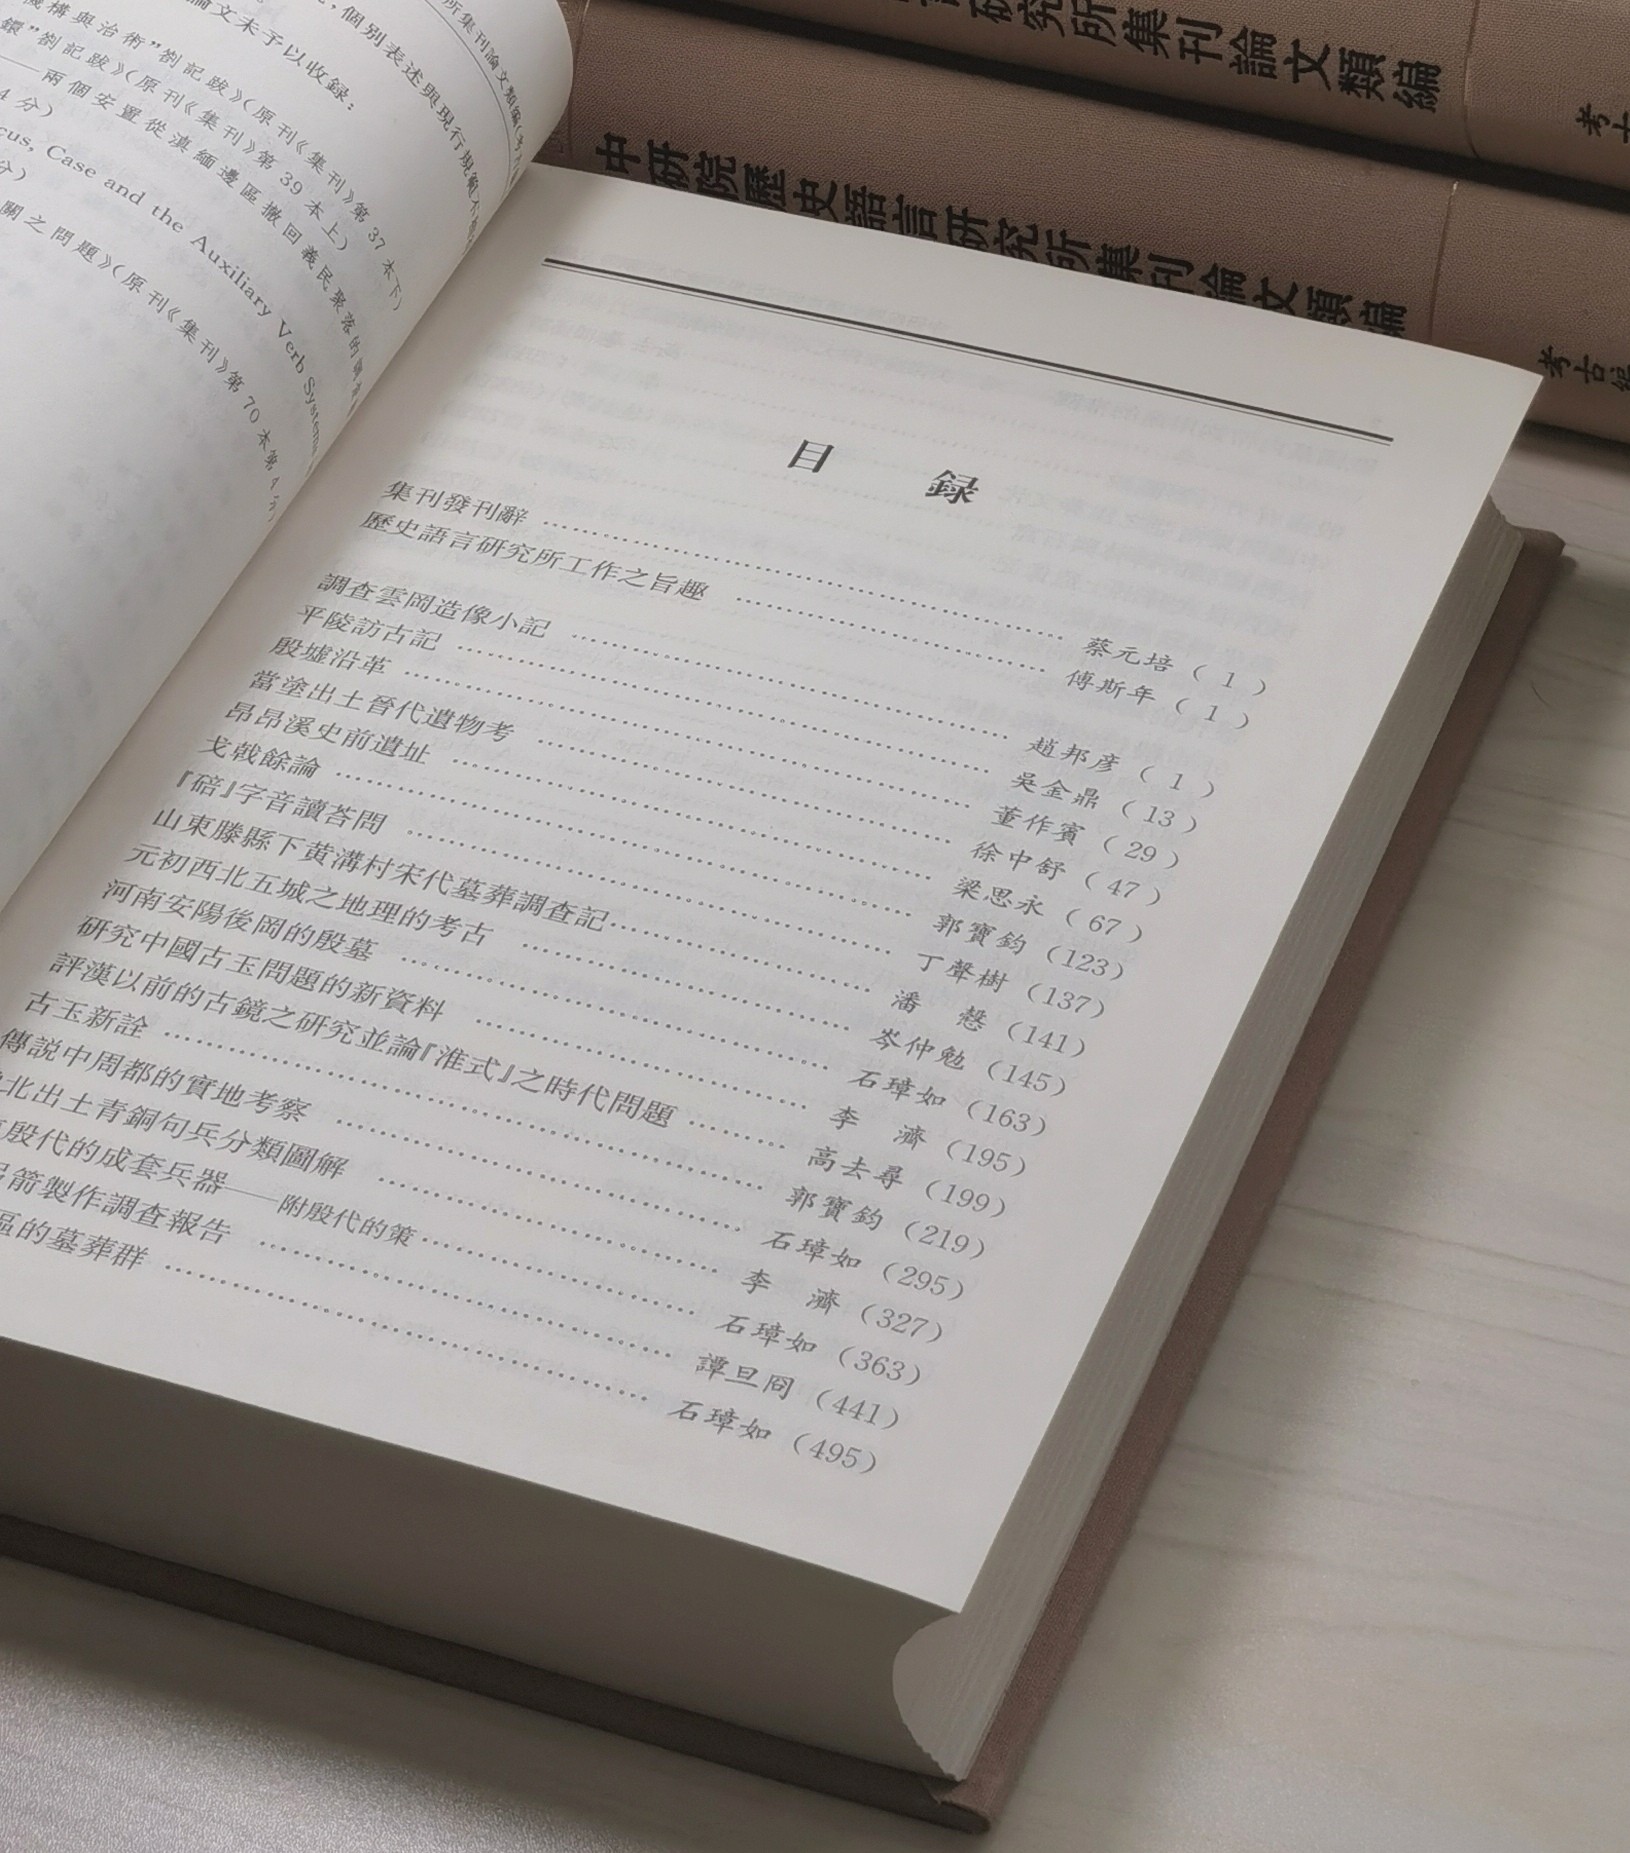 所集刊論文類編
個別表述與現行規範不
論文未予以收録：
機構與治術”劄記跋》（原刊《集刊》第37本下）
鐶”劄記跋》（原刊《集刊》第39本上）
——兩個安置從滇緬邊區撤回義民聚落的
4分）
cus, Case and the Auxiliary Verb Systems
分）
關之問題》（原刊《集刊》第70本第4分）
研究所集刊論文類編
考古
中研院歷史語言研究所集刊論文類編
考古編
目 録
集刊發刊辭 …… 蔡元培（1）
歷史語言研究所工作之旨趣 …… 傅斯年（1）
調查雲岡造像小記 …… 趙邦彦（1）
平陵訪古記 …… 吳金鼎（13）
殷墟沿革 …… 董作賓（29）
當塗出土晉代遺物考 …… 徐中舒（47）
昂昂溪史前遺址 …… 梁思永（67）
戈戟餘論 …… 郭寶鈞（123）
『碚』字音讀荅問 …… 丁聲樹（137）
山東滕縣下黄溝村宋代墓葬調查記 …… 潘 慤（141）
元初西北五城之地理的考古 …… 岑仲勉（145）
河南安陽後岡的殷墓 …… 石璋如（163）
研究中國古玉問題的新資料 …… 李 濟（195）
評漢以前的古鏡之研究並論『淮式』之時代問題 …… 高去尋（199）
古玉新詮 …… 郭寶鈞（219）
傳説中周都的實地考察 …… 石璋如（295）
北出土青銅句兵分類圖解 …… 李 濟（327）
殷代的成套兵器——附殷代的策 …… 石璋如（363）
箭製作調查報告 …… 譚旦冏（441）
區的墓葬群 …… 石璋如（495）